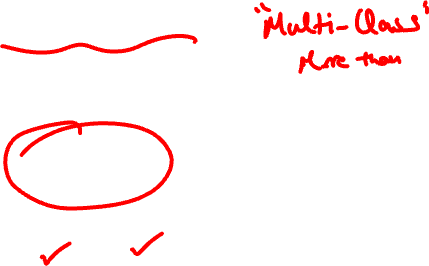 "Multi-Class"
More than